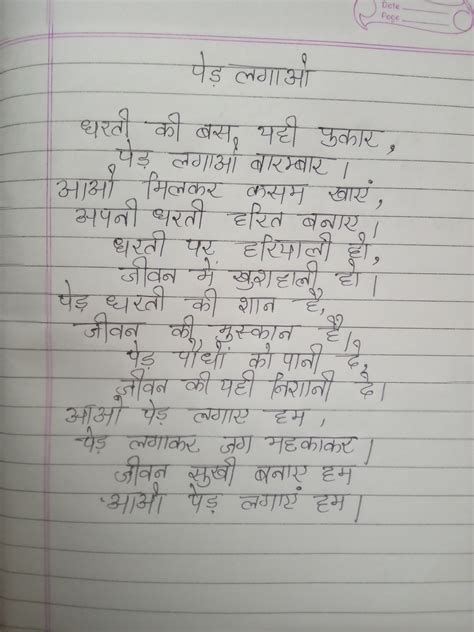 Date
Page
पेड़ लगाओ
धरती की बस, यही पुकार,
पेड़ लगाओं बारम्बार ।
आओ मिलकर कसम खाएं,
अपनी धरती हरित बनाए।
धरती पर हरियाली हो,
जीवन में खुशहाली हो ।
पेड़ धरती की शान है,
जीवन की मुस्कान है।
पेड़ पौधों को पानी दे,
जीवन की यही निशानी दे।
आओ पेड़ लगाए हम,
पेड़ लगाकर, जग महकाकर ।
जीवन सुखी बनाए हम
आओ पेड़ लगाएं हम ।